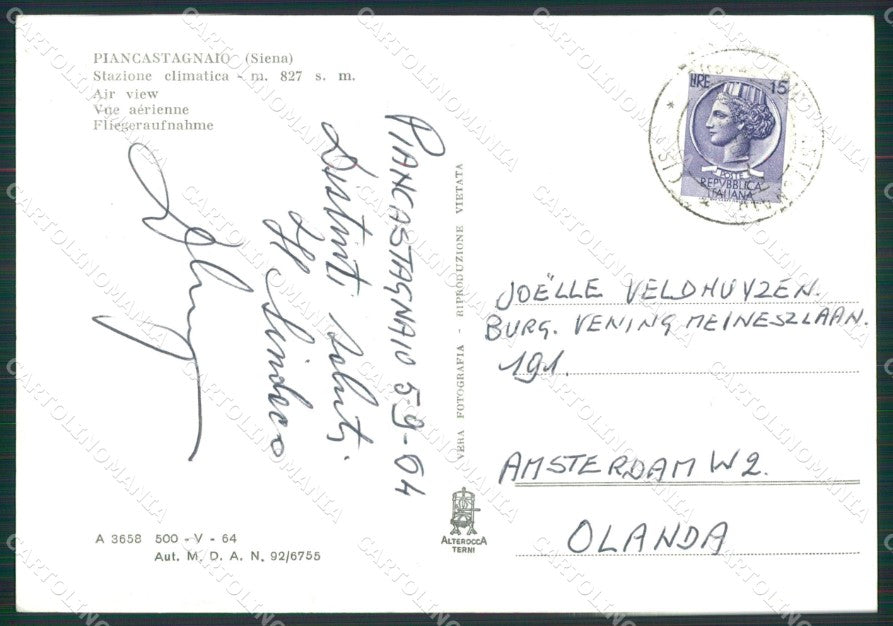 PIANCASTAGNAIO (Siena)
Stazione climatica - m. 827 s. m.
Air view
Vue aérienne
Fliegeraufnahme
PIANCASTAGNAIO 5-9-64
Distinti saluti
Il Sindaco
A 3658 500 - V - 64
Aut. M. D. A. N. 92/6755
VERA FOTOGRAFIA - RIPRODUZIONE VIETATA
ALTEROCCA
TERNI
LIRE 15
POSTE
REPVBBLICA
ITALIANA
JOËLLE VELDHUYZEN.
BURG. VENING MEINESZLAAN.
191.
AMSTERDAM W2.
OLANDA
CARTOLINOMANIA